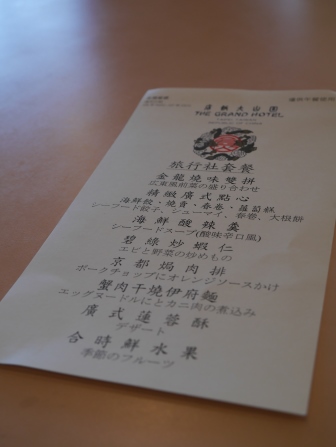 圓山大飯店
THE GRAND HOTEL
旅行社套餐
金龍燒味雙拼
広東風前菜の盛り合わせ
精緻廣式點心
海鮮餃・燒賣・春巻・蘿蔔糕
シーフード餃子、シューマイ、春巻、大根餅
海鮮酸辣羹
シーフードスープ(酸味辛口風)
碧綠炒蝦仁
エビと野菜の炒めもの
京都焗肉排
ポークチョップにオレンジソースかけ
蟹肉干燒伊府麵
エッグヌードルにとカニ肉の煮込み
廣式蓮蓉酥
デザート
合時鮮水果
季節のフルーツ